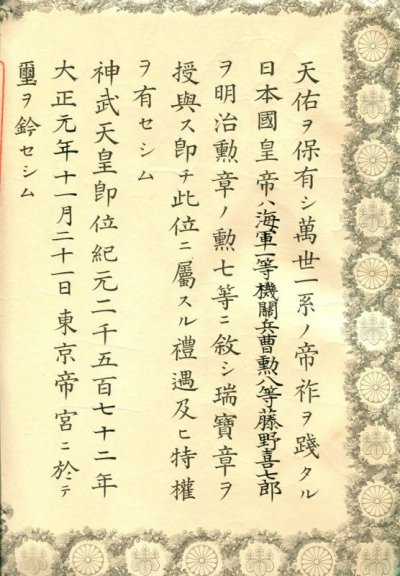 天佑ヲ保有シ萬世一系ノ帝祚ヲ踐タル
日本國皇帝ハ海軍一等機關兵曹勲八等藤野喜七郎
ヲ明治勲章ノ勲七等ニ敘シ瑞寶章ヲ
授與ス卽チ此位ニ屬スル禮遇及ヒ特權
ヲ有セシム
神武天皇卽位紀元二千五百七十二年
大正元年十一月二十一日東京帝宮ニ於テ
璽ヲ鈐セシム